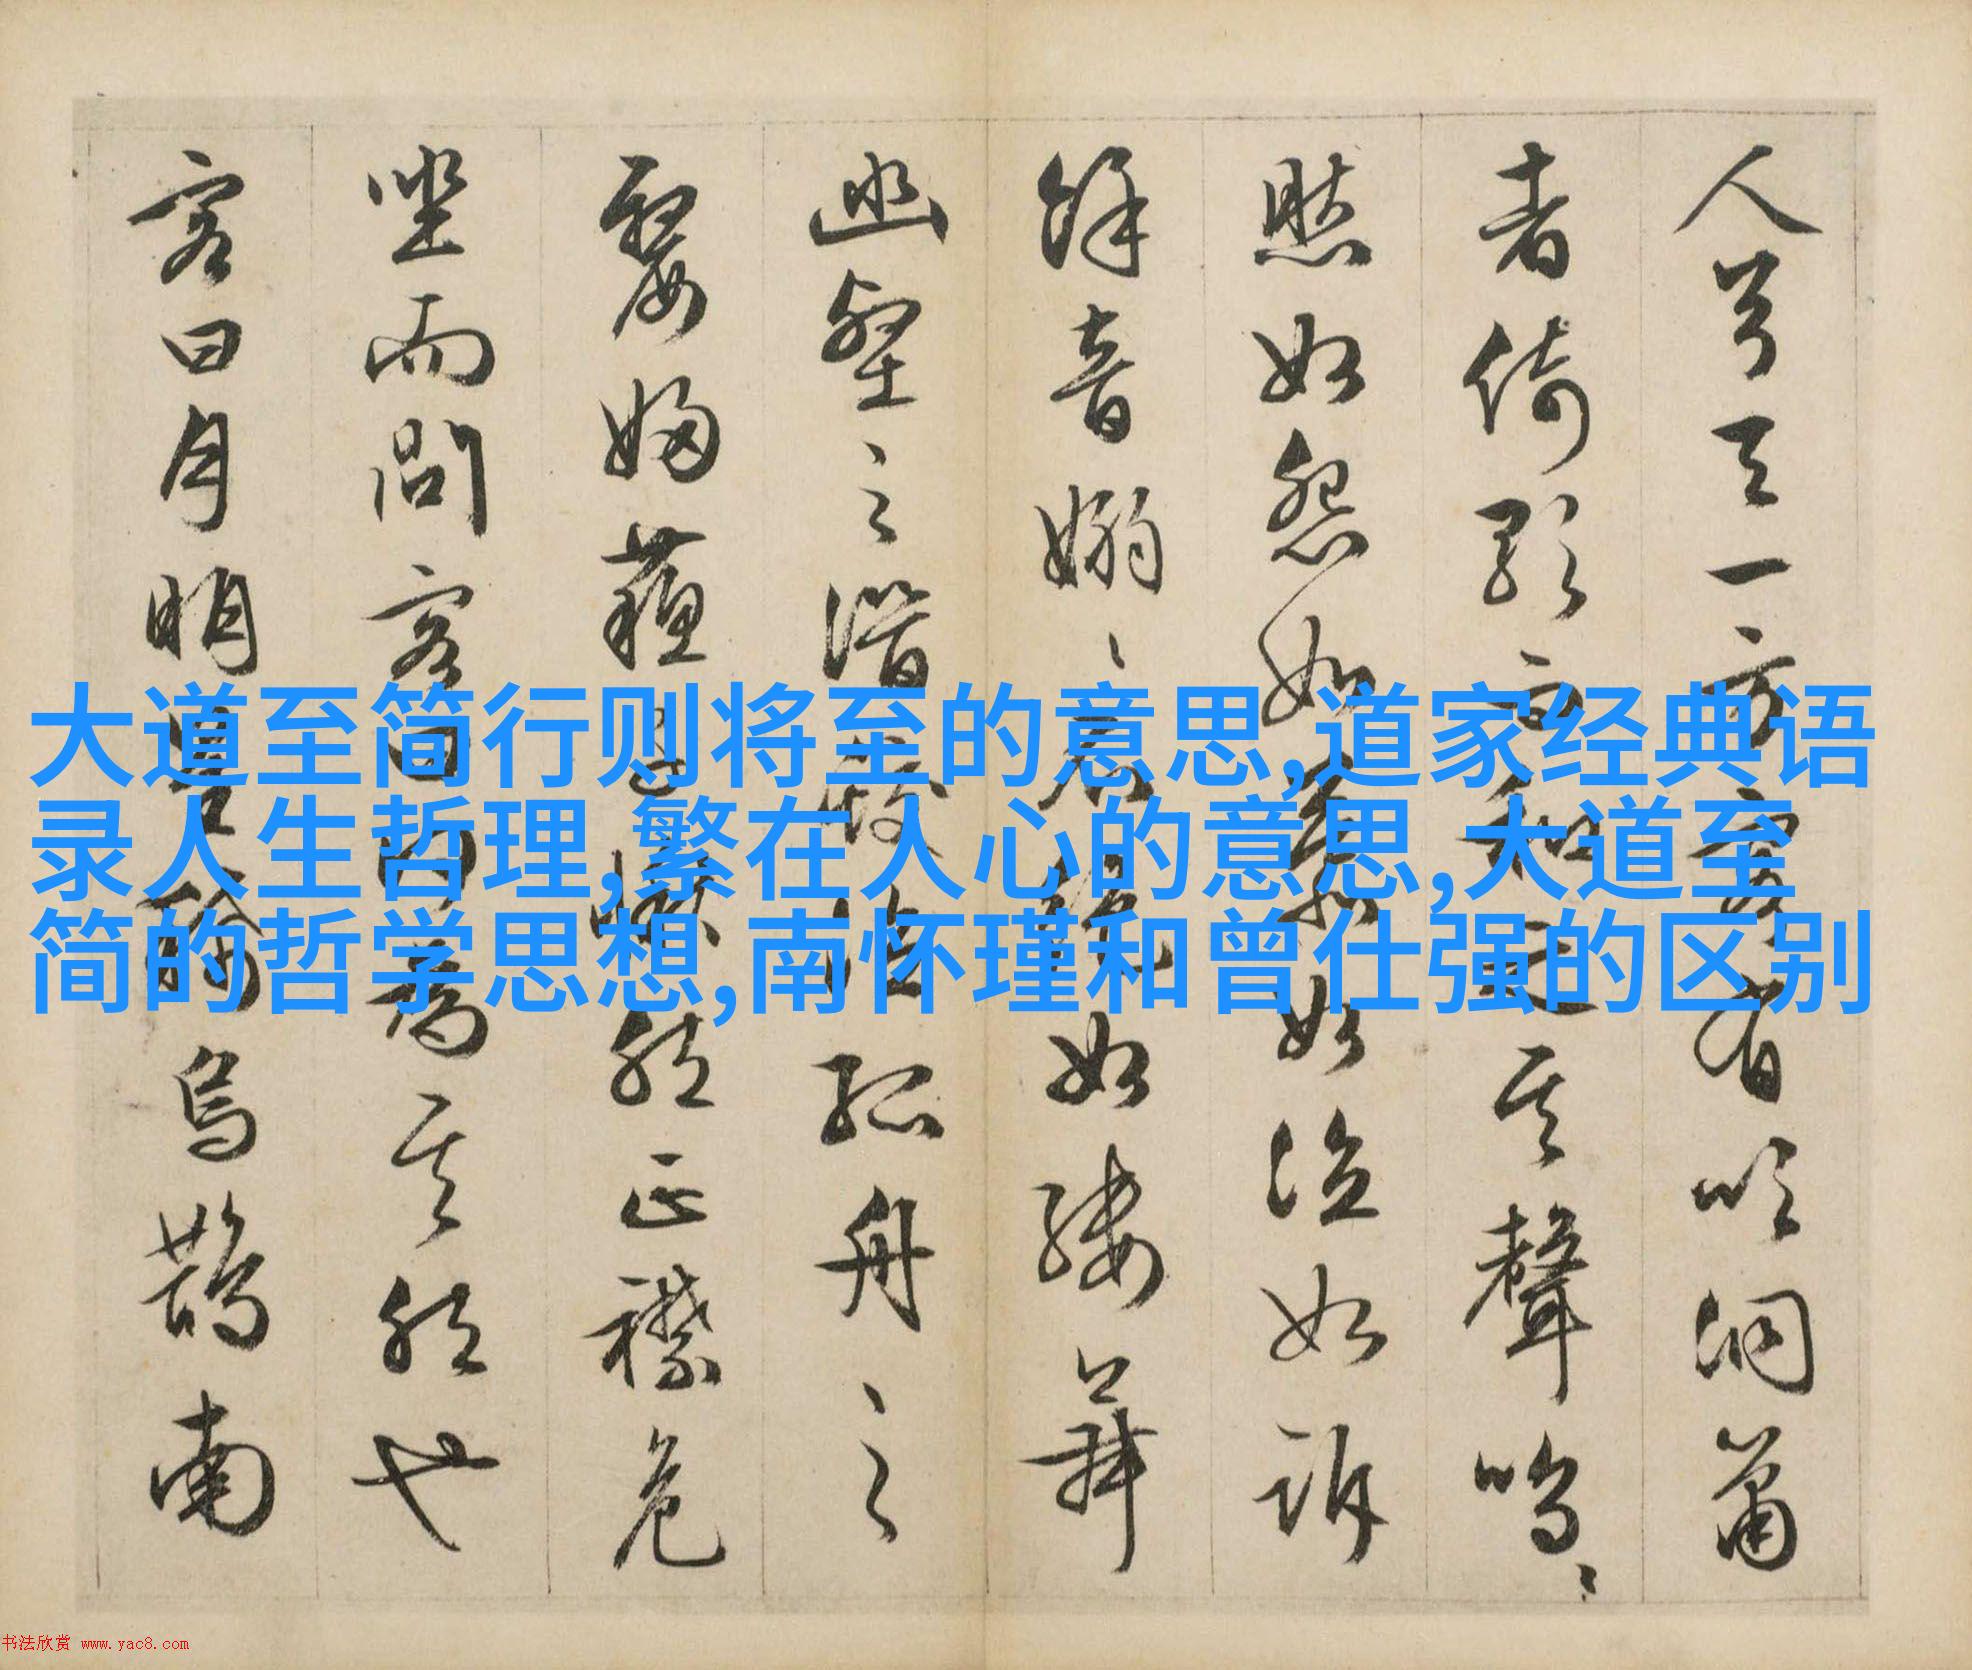 人兮天一方客有吹洞蕭
者倚歌而和之其聲嗚〻
然如怨如慕如泣如訴
餘音嫋〻不絕如縷舞
幽壑之潛蛟泣孤舟之
嫠婦蘇子愀然正襟危
坐而問客曰何為其然也
客曰月明星稀烏鵲南
大道至简行则将至的意思,道家经典语
录人生哲理,繁在人心的意思,大道至
简的哲学思想,南怀瑾和曾仕强的区别
书法欣赏 www.yac8.com